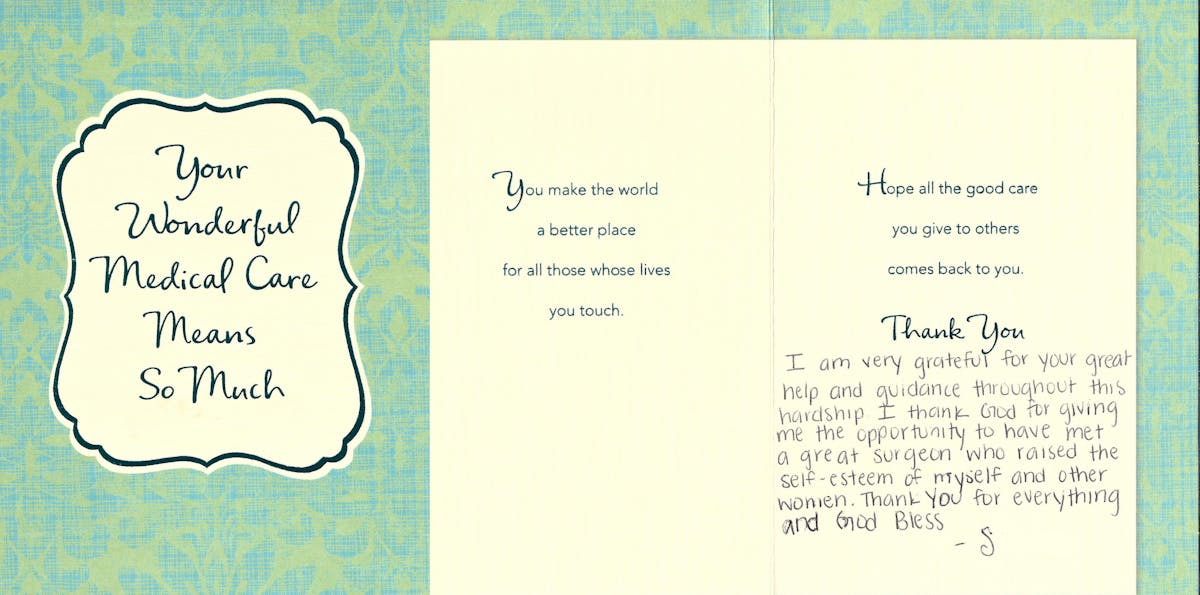 Your
Wonderful
Medical Care
Means
So Much
You make the world
a better place
for all those whose lives
you touch.
Hope all the good care
you give to others
comes back to you.
Thank You
I am very grateful for your great
help and guidance throughout this
hardship I thank God for giving
me the opportunity to have met
a great surgeon who raised the
self-esteem of myself and other
women. Thank You for everything
and God Bless
- S